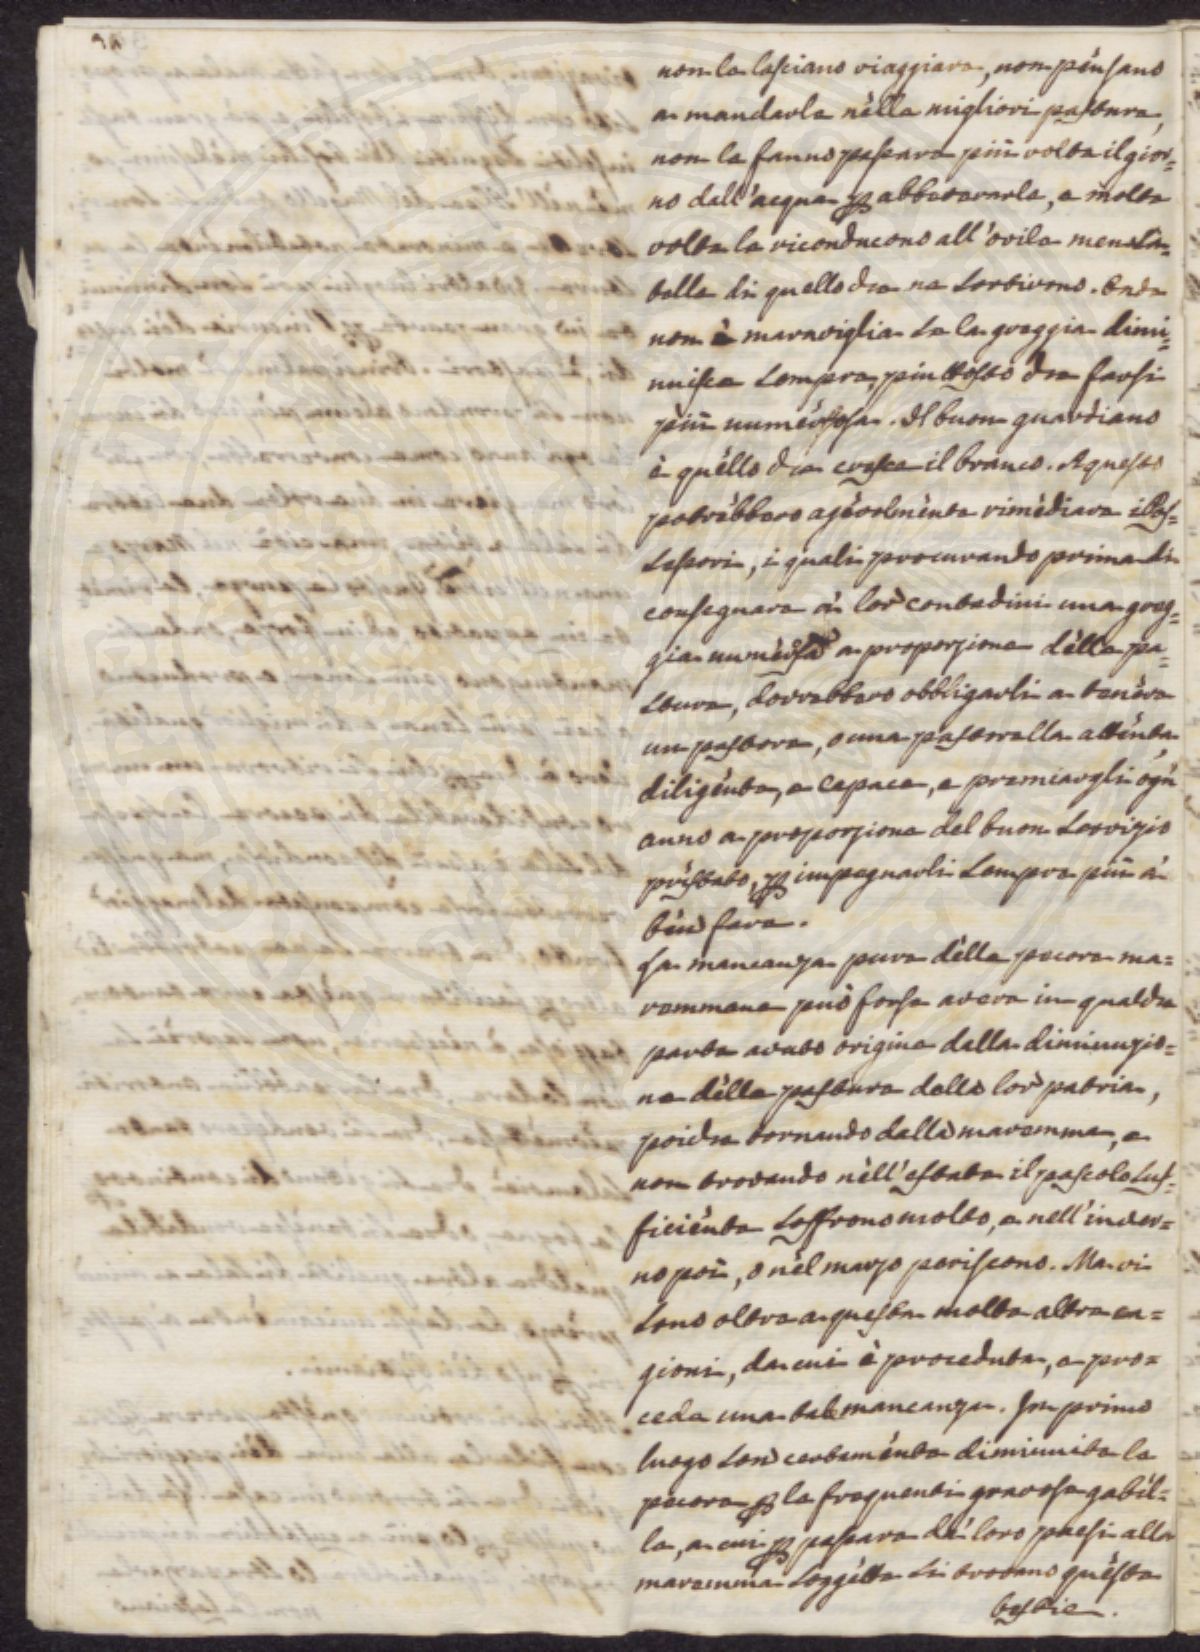 non le lasciano viaggiare, non pènsano
a mandarle nèlle migliori pasture,
non le fanno passare più volte il gior=
no dall'acqua per abbeverarle, e molte
volte le riconducono all'ovile men sa=
tolle di quello che ne sortirono. Onde
non è maraviglia se la greggia dimi=
nuisce sempre, piuttosto che farsi
più numerosa. Il buon guardiano
è quèllo che cresce il branco. A questo
potrèbbero agevolmènte rimèdiare i Pos=
sessori, i quali procurando prima di
consegnare ai lor contadini una greg=
gia numèrosa a proporzione dèlla pa=
stura, dovrebbero obbligarli a tenère
un pastore, o una pastorella attènta
diligènte, e capace, e premiargli ogn'
anno a proporzione del buon servizio
prèstato, per impegnarli sempre più a
bèn fare.
La mancanza pure dèlle pecore ma=
remmane può forse avere in qualche
parte avuto origine dalla diminuzio=
ne dèlle pasture delle lor patrie,
poiche tornando dalle maremme, e
non trovando nèll'estate il pascolo suf=
ficiènte soffrono molto, e nell'inver=
no poi, o nèl marzo periscono. Ma vi
sono oltre a questa molte altre ca=
gioni, da cui è proceduta, e pro=
cede una tal mancanza. In primo
luogo son certamènte diminuite le
pecore per le frequenti gravose gabèl=
le, a cui per passare dei loro paesi alle
maremme soggètte si trovano quèste
bestie.